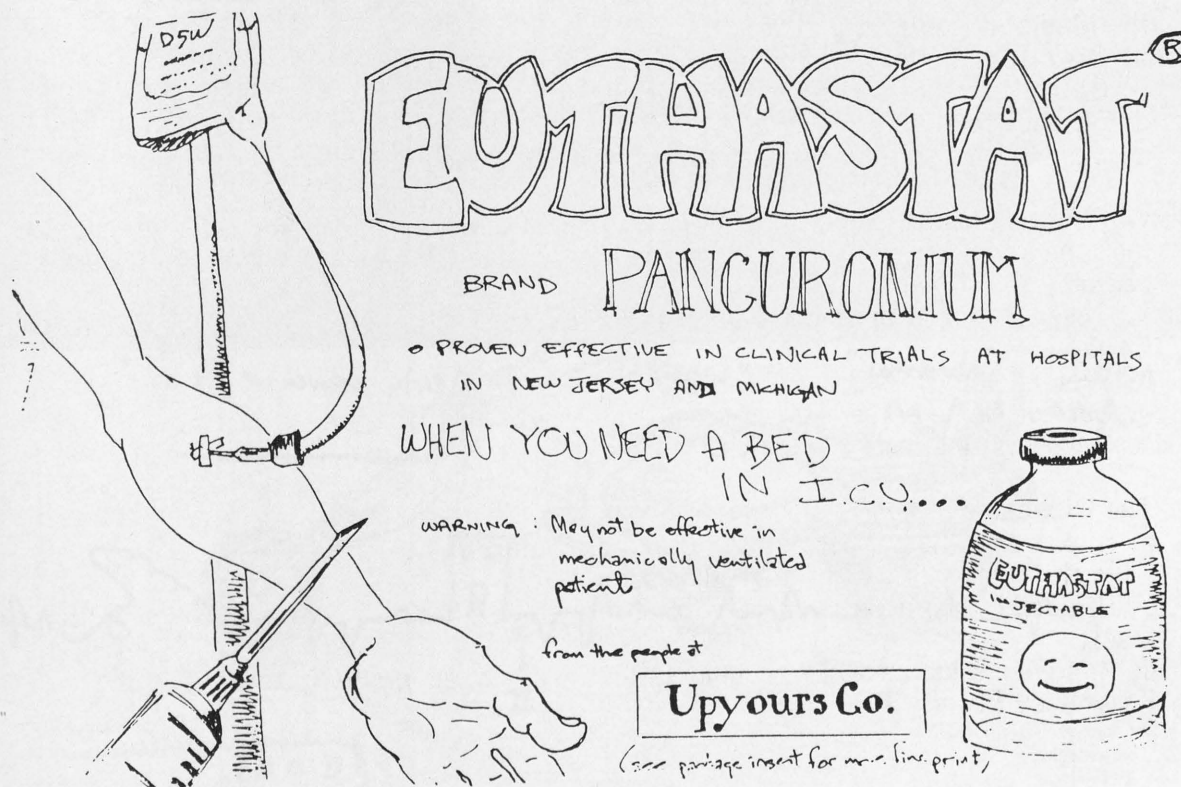 D5W
EUTHASTAT®
BRAND PANCURONIUM
• PROVEN EFFECTIVE IN CLINICAL TRIALS AT HOSPITALS
IN NEW JERSEY AND MICHIGAN
WHEN YOU NEED A BED
IN I.C.U....
WARNING : May not be effective in
mechanically ventilated
patient
EUTHASTAT
INJECTABLE
from the people at
Upyours Co.
(see package insert for more fine print)